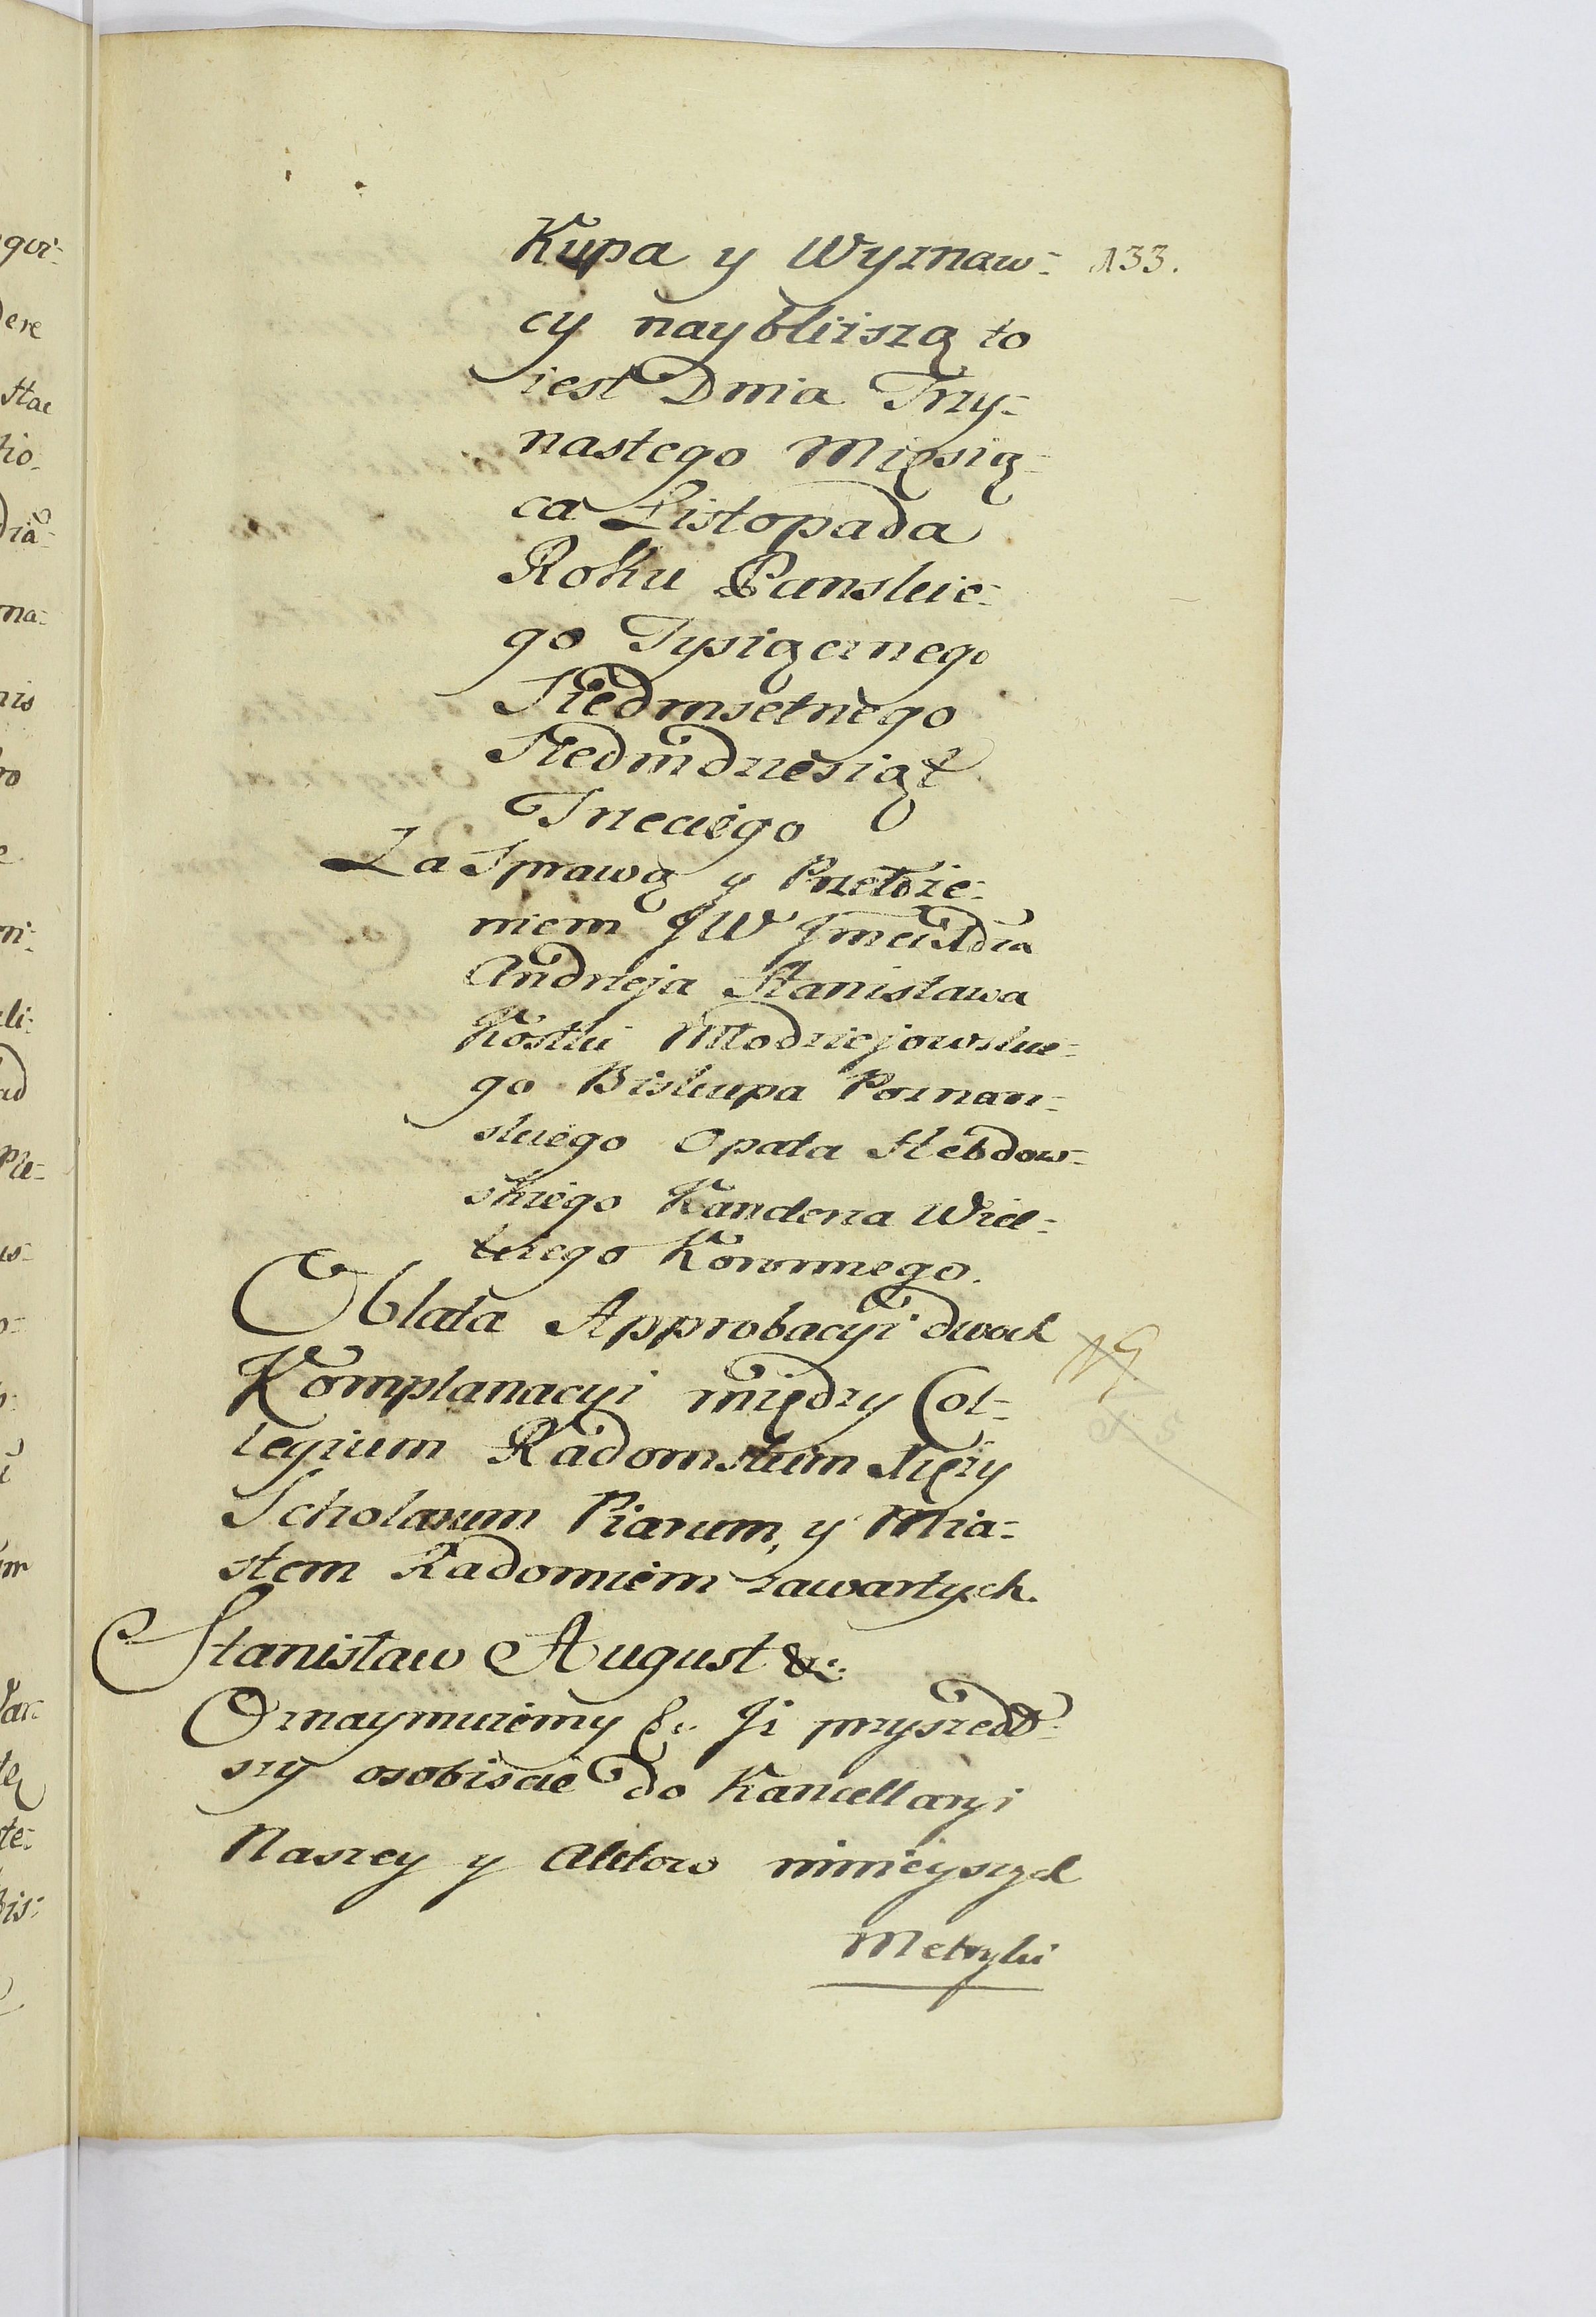 133.
Kupa y Wyznaw=
cy naybliższą to
iest Dnia Trzy=
nastego Mięsią=
ca Listopada
Roku Panskie=
go Tysiącznego
Siedmsetnego
Siedmdziesiąt
Trzeciego
Za Sprawą y Przełoże=
niem JW Jmci Xdza
Andrzeja Stanisława
Kostki Młodziejowskie=
go Biskupa Poznan=
skiego Opata Hebdow=
skiego Kanclerza Wiel=
kiego Koronnego.
Oblata Approbacyi dwoch
Komplanacyi między Col=
legium Radomskim Xięży
Scholarum Piarum, y Mia=
stem Radomiem zawartych.
Stanisław August &c:
Oznaymuiemy &c: Jż przyszedł=
szy osobiscie do Kancellaryi
Naszey y Aktow ninieyszych
Metryki